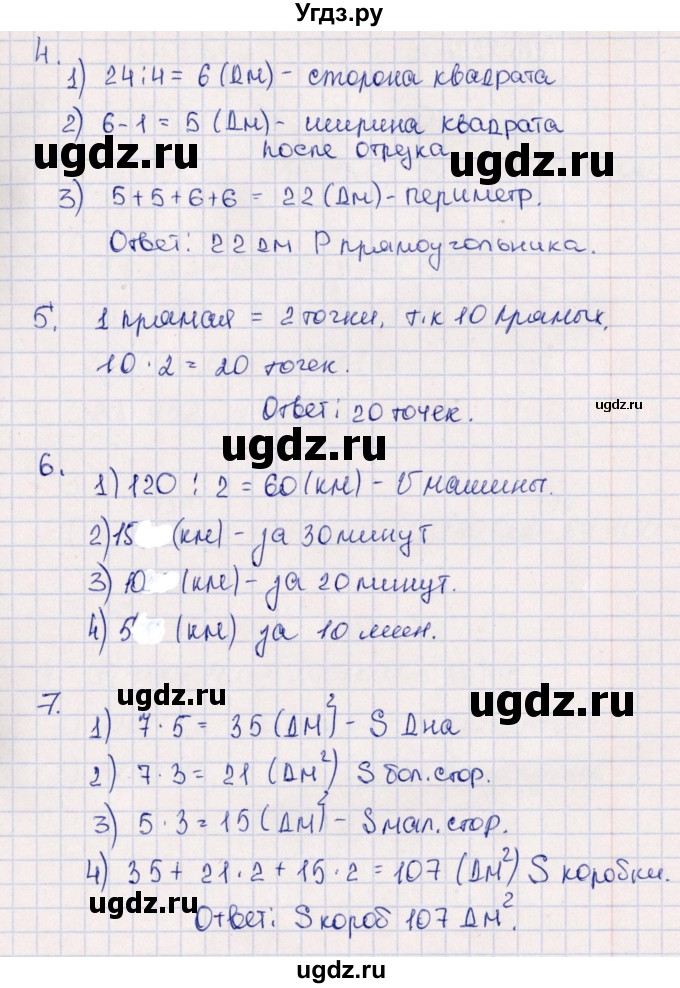 Угдз.ру
4.
1) 24:4= 6 (дм) - сторона квадрата
2) 6-1 = 5 (дм) - ширина квадрата
после отрезка
ugdz.ru
ugdz.ru
3) 5+5+6+6 = 22 (дм) - периметр.
Ответ: 22 дм P прямоугольника.
5. 1 прямая = 2 точки, т.к 10 прямых,
10·2 = 20 точек.
ugdz.ru
Ответ: 20 точек.
ugdz.ru
6.
1) 120 : 2 = 60 (км) - V машины.
2) 15 (км) - за 30 минут
3) 10 (км) - за 20 минут.
4) 5 (км) за 10 мин.
ugdz.ru
ugdz.ru
7.
1) 7·5 = 35 (дм²) - S дна
2) 7·3 = 21 (дм²) S бол. стор.
3) 5·3 = 15 (дм²) - S мал. стор.
4) 35 + 21·2 + 15·2 = 107 (дм²) S коробки.
ugdz.ru
Ответ: S короб 107 дм².
ugdz.ru